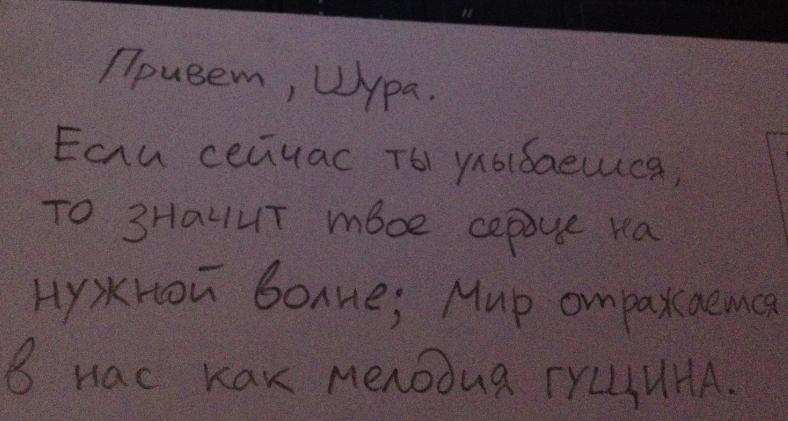 Привет, Шура.
Если сейчас ты улыбаешся,
то значит твое сердце на
нужной волне; Мир отражается
в нас как мелодия ГУЩИНА.